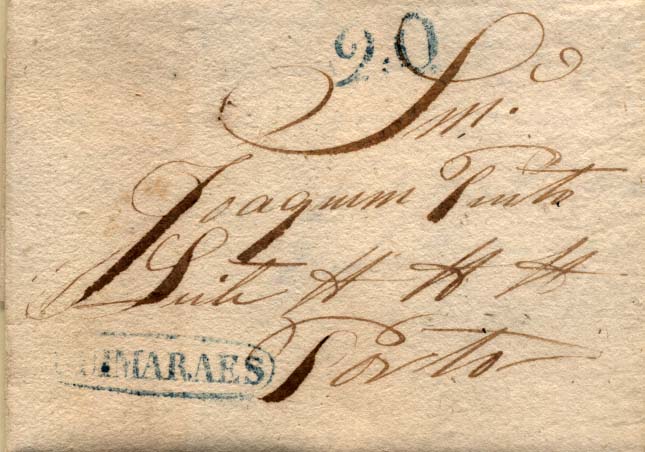 20
Snr.
Joaquim Pinto
Leite H H H
Porto
GUIMARAES